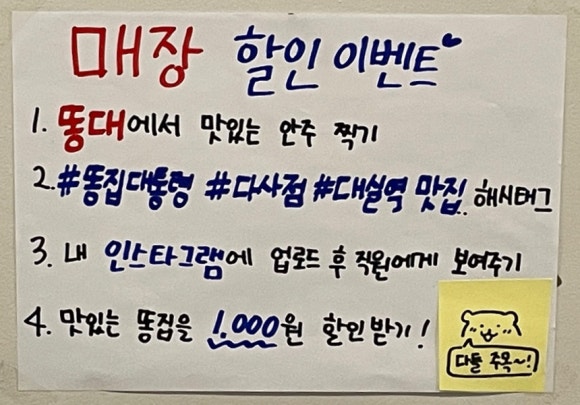 매장 할인 이벤트
1. 똥대에서 맛있는 안주 찍기
2. #똥집대통령 #다사점 #대실역 맛집 해시태그
3. 내 인스타그램에 업로드 후 직원에게 보여주기
4. 맛있는 똥집을 1,000원 할인받기!
다들 주목~!